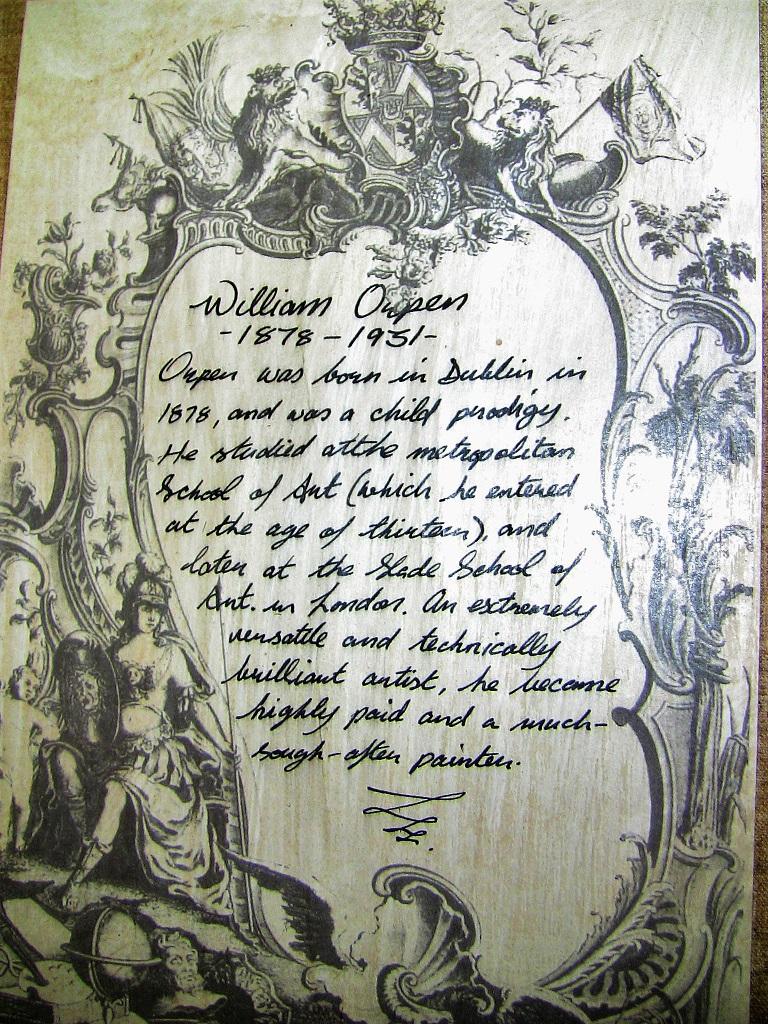 William Orpen
-1878-1931-
Orpen was born in Dublin in
1878, and was a child prodigy.
He studied at the metropolitan
School of Art (which he entered
at the age of thirteen), and
later at the Slade School of
Art. in London. An extremely
versatile and technically
brilliant artist, he became
highly paid and a much-
sough-after painter.